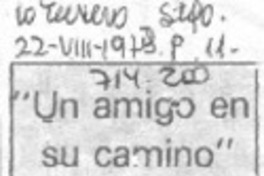 La Tercera Stgo.
22-VIII-1978. P. 11.
714.200
"Un amigo en
su camino"